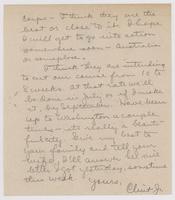 Corps - I think they are the
best or close to it. I hope
I will get to go into action
somewhere soon - Australia
or someplace.
I think they are intending
to cut our course from 10 to
8 weeks. At that rate we'll
be done in July or if I make
it, by September. Have been
up to Washington a couple
times - it's really a beauti-
ful city. Give my best to
your family and tell your
wife, I'll answer her nice
letter I got yesterday, sometime
this week. Yours,
Chint Jr.